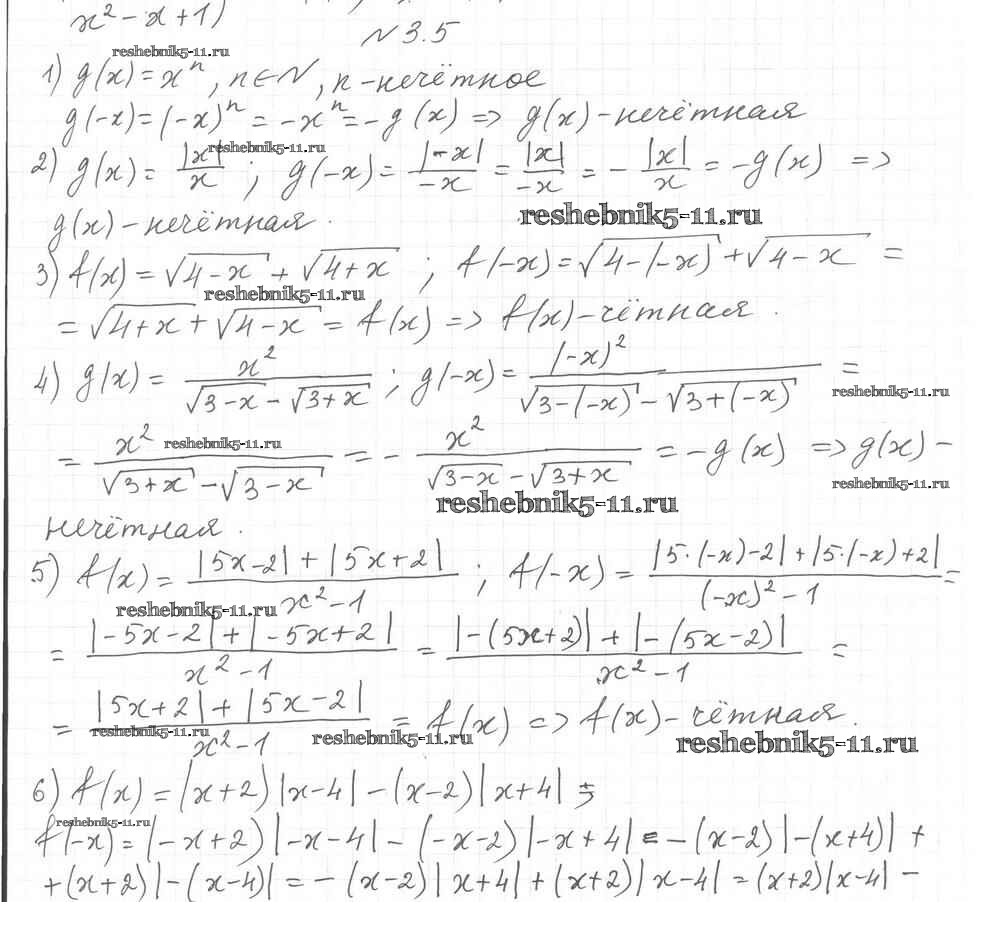 x² - x + 1)
№3.5
reshebnik5-11.ru
1) g(x) = xⁿ, n∈N, n - нечётное
g(-x) = (-x)ⁿ = -xⁿ = -g(x) => g(x) - нечётная
reshebnik5-11.ru
2) g(x) = |x|/x ; g(-x) = |-x|/-x = |x|/-x = - |x|/x = -g(x) =>
reshebnik5-11.ru
g(x) - нечётная.
3) f(x) = √(4-x) + √(4+x) ; f(-x) = √(4-(-x)) + √(4-x) =
reshebnik5-11.ru
= √(4+x) + √(4-x) = f(x) => f(x) - чётная.
4) g(x) = x²/(√(3-x) - √(3+x)) ; g(-x) = (-x)²/(√(3-(-x)) - √(3+(-x))) =
reshebnik5-11.ru
= x²/(√(3+x) - √(3-x)) = - x²/(√(3-x) - √(3+x)) = -g(x) => g(x) -
reshebnik5-11.ru
reshebnik5-11.ru
reshebnik5-11.ru
нечётная.
5) f(x) = (|5x-2| + |5x+2|)/(x²-1) ; f(-x) = (|5·(-x)-2| + |5·(-x)+2|)/((-x)²-1) =
reshebnik5-11.ru
= (|-5x-2| + |-5x+2|)/(x²-1) = (|-(5x+2)| + |-(5x-2)|)/(x²-1) =
= (|5x+2| + |5x-2|)/(x²-1) = f(x) => f(x) - чётная.
reshebnik5-11.ru
reshebnik5-11.ru
reshebnik5-11.ru
6) f(x) = (x+2)|x-4| - (x-2)|x+4| ;
reshebnik5-11.ru
f(-x) = (-x+2)|-x-4| - (-x-2)|-x+4| = -(x-2)|-(x+4)| +
+(x+2)|-(x-4)| = -(x-2)|x+4| + (x+2)|x-4| = (x+2)|x-4| -